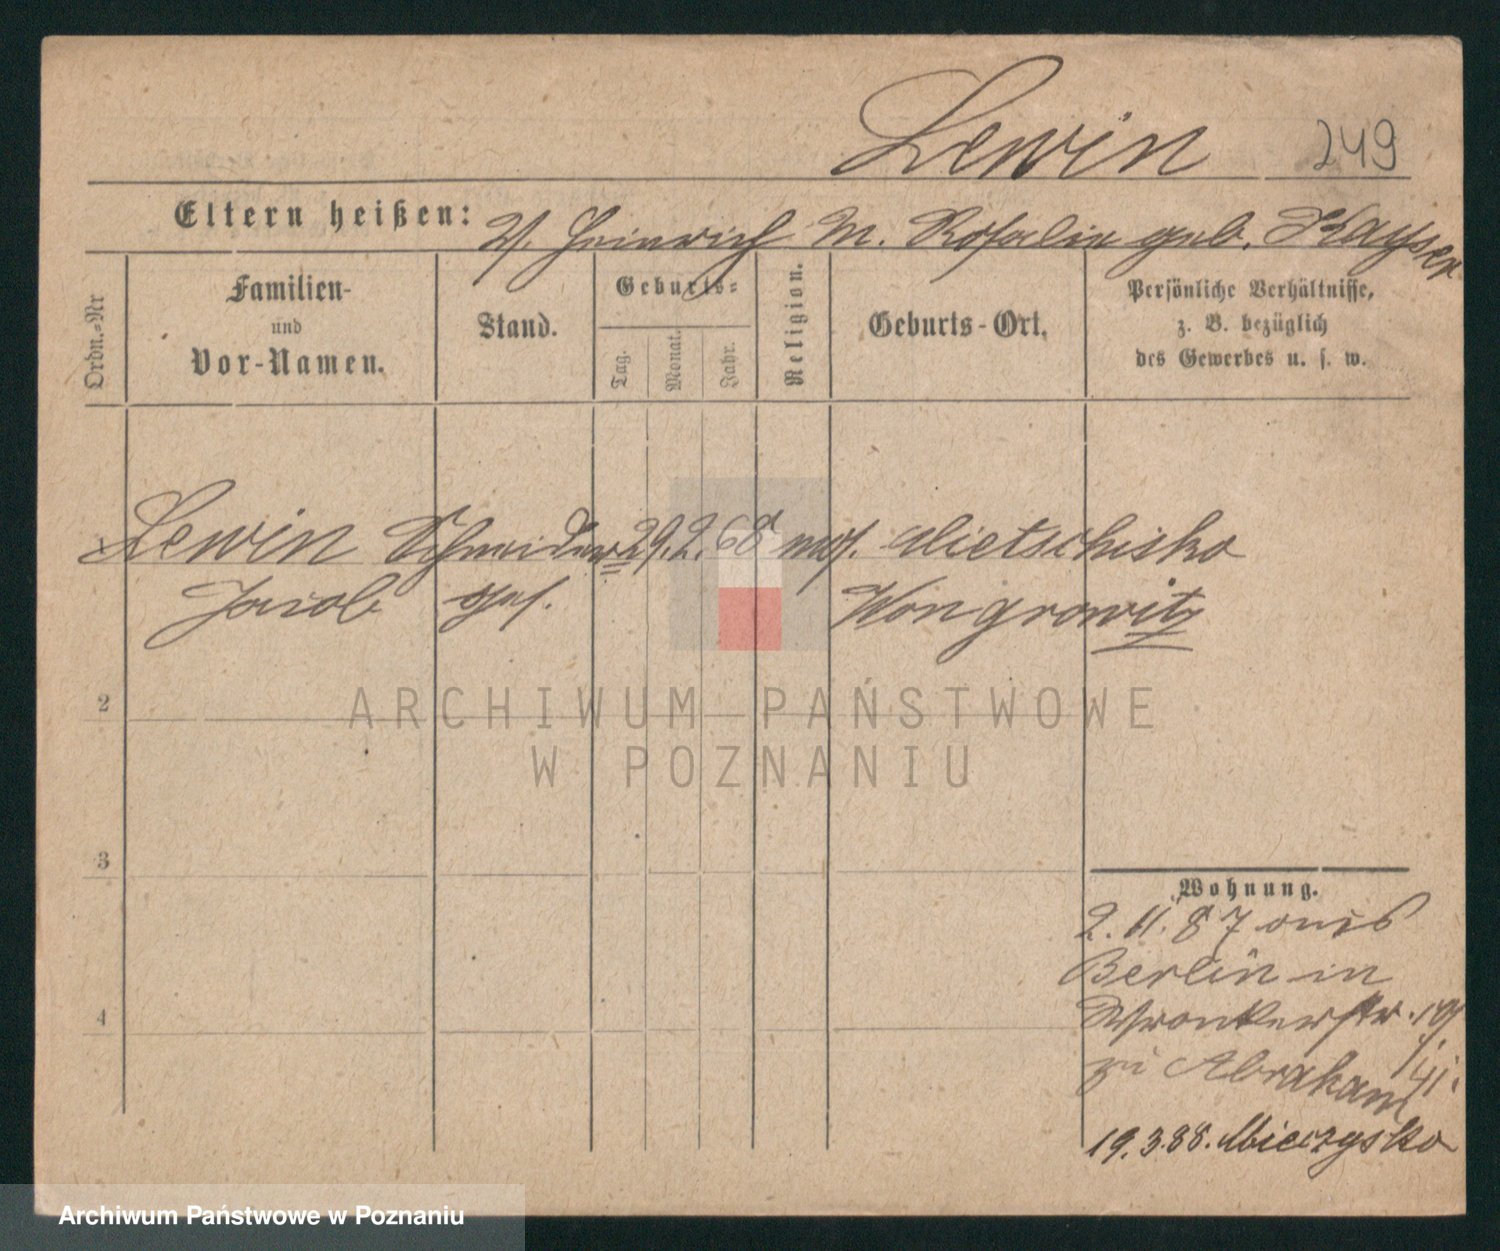 Lewin 249
Eltern heißen: V. Heinrich M. Rosalie geb. Kayser
Ordn.=Nr
Familien-
und
Vor-Namen.
Stand.
Geburts=
Tag.
Monat.
Jahr.
Religion.
Geburts-Ort.
Persönliche Verhältnisse,
z. B. bezüglich
des Gewerbes u. s. w.
1 Lewin Schneider 29. 2. 68 mos. Mietschisko
Jacob ges. Wongrowitz
2
ARCHIWUM PAŃSTWOWE
W POZNANIU
3
Wohnung.
2. 11. 87 aus
Berlin in
Wronkerstr. 19
4
zu Abraham
19. 3. 88. Mieczysko
Archiwum Państwowe w Poznaniu